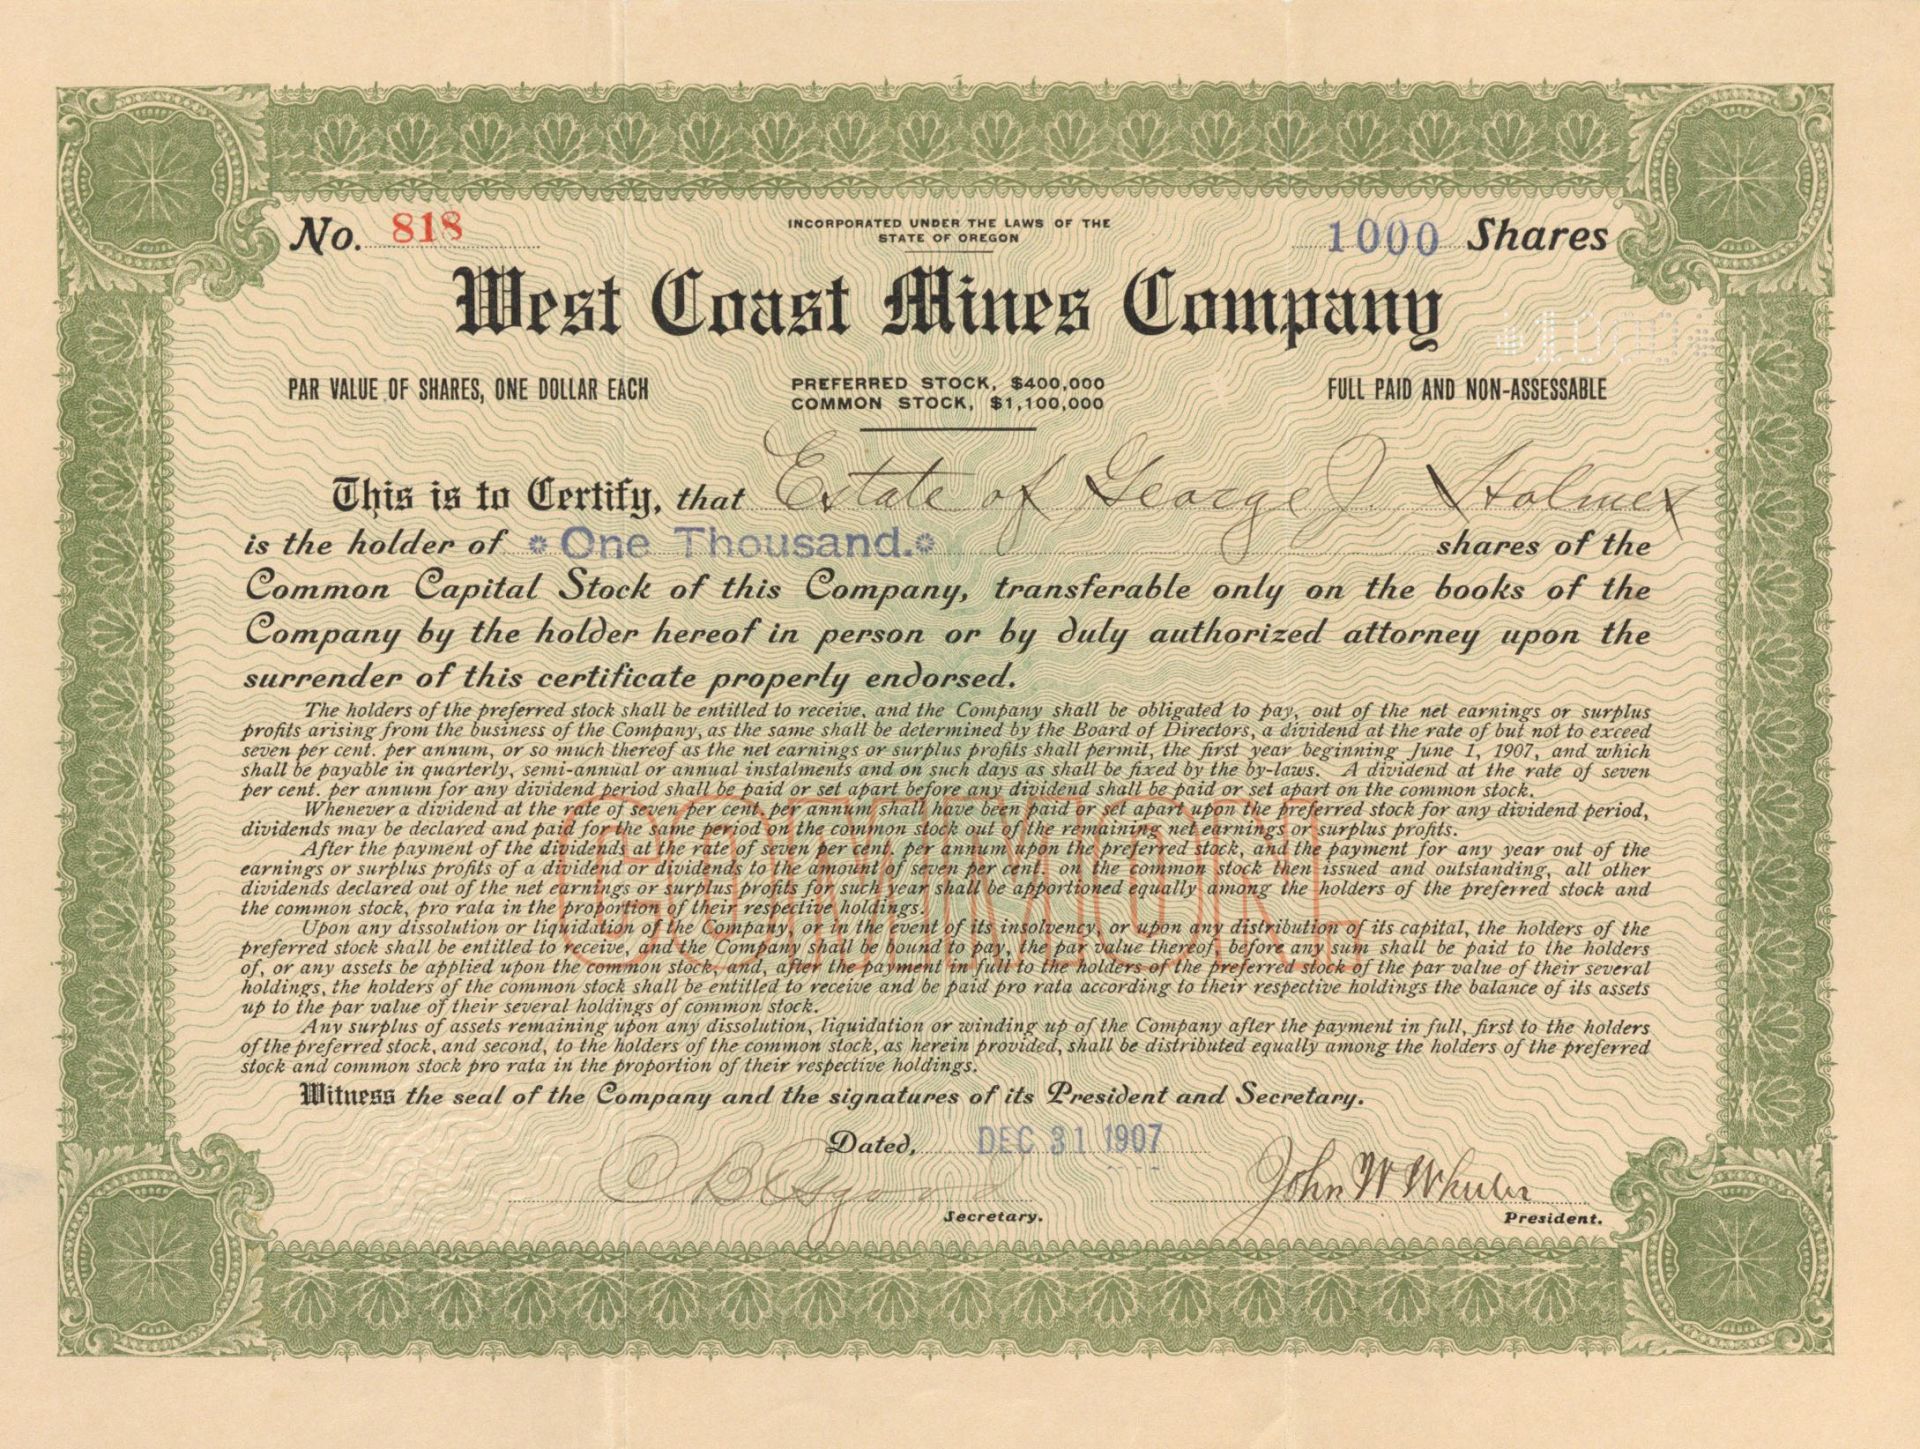 No. 818
INCORPORATED UNDER THE LAWS OF THE
STATE OF OREGON
1000 Shares
West Coast Mines Company
1000
PAR VALUE OF SHARES, ONE DOLLAR EACH
PREFERRED STOCK, $400,000
COMMON STOCK, $1,100,000
FULL PAID AND NON-ASSESSABLE
This is to Certify, that Estate of George J. Holmes
is the holder of One Thousand. shares of the
Common Capital Stock of this Company, transferable only on the books of the
Company by the holder hereof in person or by duly authorized attorney upon the
surrender of this certificate properly endorsed.
The holders of the preferred stock shall be entitled to receive, and the Company shall be obligated to pay, out of the net earnings or surplus
profits arising from the business of the Company, as the same shall be determined by the Board of Directors, a dividend at the rate of but not to exceed
seven per cent. per annum, or so much thereof as the net earnings or surplus profits shall permit, the first year beginning June 1, 1907, and which
shall be payable in quarterly, semi-annual or annual instalments and on such days as shall be fixed by the by-laws. A dividend at the rate of seven
per cent. per annum for any dividend period shall be paid or set apart before any dividend shall be paid or set apart on the common stock.
Whenever a dividend at the rate of seven per cent. per annum shall have been paid or set apart upon the preferred stock for any dividend period,
dividends may be declared and paid for the same period on the common stock out of the remaining net earnings or surplus profits.
After the payment of the dividends at the rate of seven per cent. per annum upon the preferred stock, and the payment for any year out of the
earnings or surplus profits of a dividend or dividends to the amount of seven per cent. on the common stock then issued and outstanding, all other
dividends declared out of the net earnings or surplus profits for such year shall be apportioned equally among the holders of the preferred stock and
the common stock, pro rata in the proportion of their respective holdings.
COMMON.
Upon any dissolution or liquidation of the Company, or in the event of its insolvency, or upon any distribution of its capital, the holders of the
preferred stock shall be entitled to receive, and the Company shall be bound to pay, the par value thereof, before any sum shall be paid to the holders
of, or any assets be applied upon the common stock, and, after the payment in full to the holders of the preferred stock of the par value of their several
holdings, the holders of the common stock shall be entitled to receive and be paid pro rata according to their respective holdings the balance of its assets
up to the par value of their several holdings of common stock.
Any surplus of assets remaining upon any dissolution, liquidation or winding up of the Company after the payment in full, first to the holders
of the preferred stock, and second, to the holders of the common stock, as herein provided, shall be distributed equally among the holders of the preferred
stock and common stock pro rata in the proportion of their respective holdings.
Witness the seal of the Company and the signatures of its President and Secretary.
Dated, DEC 31 1907
C B Osgood John W Wheeler
Secretary. President.